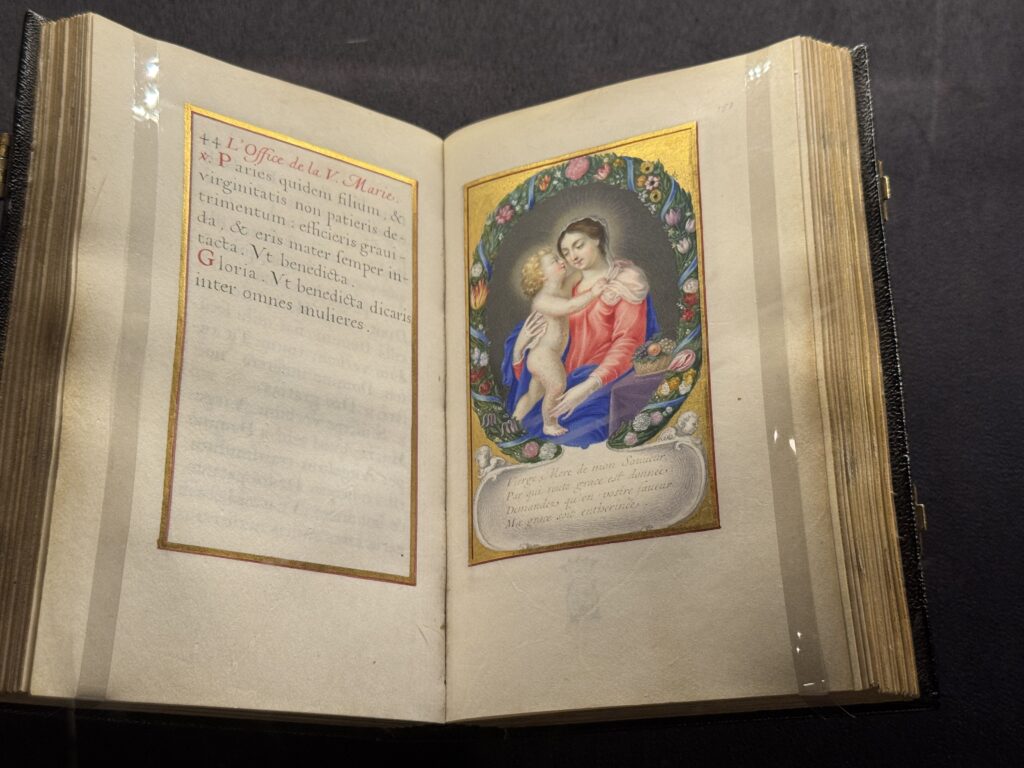 44 L'Office de la V. Marie.
℣. Paries quidem filium, &
virginitatis non patieris de-
trimentum : efficieris gravi-
da, & eris mater semper in-
tacta. Vt benedicta.
Gloria. Vt benedicta dicaris
inter omnes mulieres.
Vierge Mere de mon Sauueur
Par qui toute grace est donnee,
Demandez qu'en vostre faueur
Ma grace soit